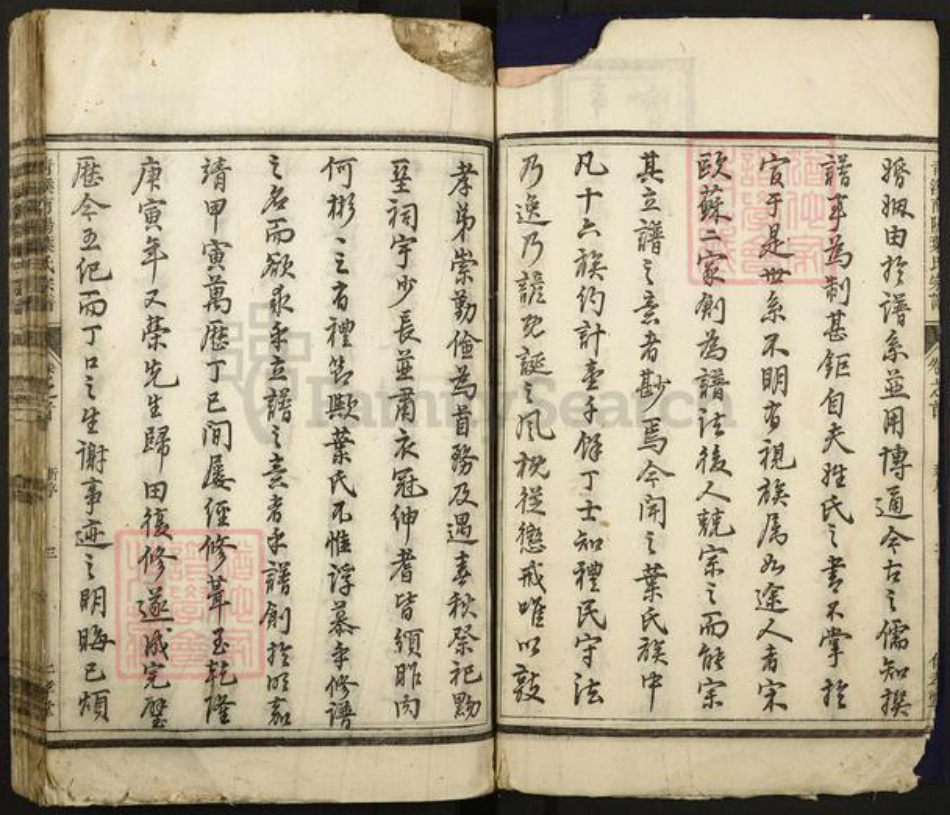 婚姻由於譜系並用博通今古之儒知撰
譜事為制甚鉅自夫姓氏之書不掌於
官于是世系不明有視族属如途人者宋
歐蘇二家創為譜法後人競宗之而能宗
其立譜之意者尠焉今聞之葉氏族中
凡十六族約計壹千餘丁士知禮民守法
乃逸乃諺既誕之風祝從懲戒唯以敦
孝弟崇勤儉為首務及遇春秋祭祀黝
堊祠宇少長並肅衣冠紳耆皆頒胙肉
何彬之有禮若斯歟葉氏不惟浮慕乎修譜
之名而欲求乎立譜之意者乎譜創於明嘉
靖甲寅萬歷丁巳間屢經修葺至乾隆
庚寅年又榮先生歸田後修遂成完璧
歷今五紀而丁口之生謝事迹之明晦已煩
南陽葉氏宗譜
卷之首
新序
三
FamilySearch